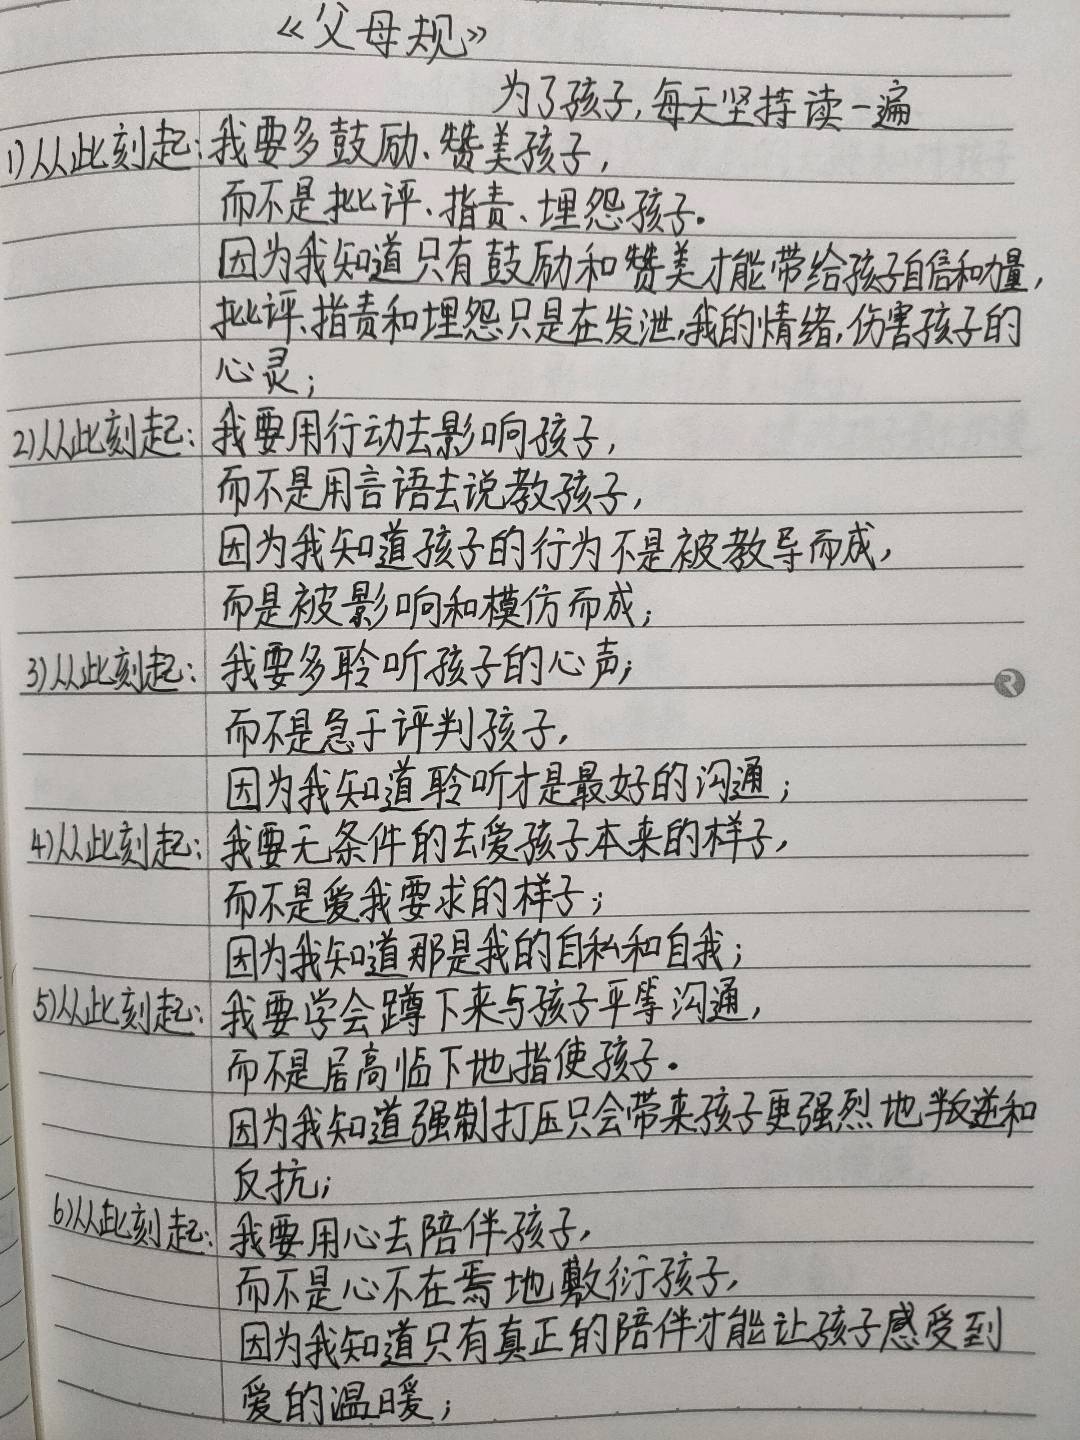 《父母规》
为了孩子,每天坚持读一遍
1)从此刻起:我要多鼓励、赞美孩子,
而不是批评、指责、埋怨孩子。
因为我知道只有鼓励和赞美才能带给孩子自信和力量,
批评、指责和埋怨只是在发泄,我的情绪,伤害孩子的
心灵;
2)从此刻起:我要用行动去影响孩子,
而不是用言语去说教孩子,
因为我知道孩子的行为不是被教导而成,
而是被影响和模仿而成;
3)从此刻起:我要多聆听孩子的心声;
而不是急于评判孩子,
因为我知道聆听才是最好的沟通;
4)从此刻起:我要无条件的去爱孩子本来的样子,
而不是爱我要求的样子;
因为我知道那是我的自私和自我;
5)从此刻起:我要学会蹲下来与孩子平等沟通,
而不是居高临下地指使孩子。
因为我知道强制打压只会带来孩子更强烈地叛逆和
反抗;
6)从此刻起:我要用心去陪伴孩子,
而不是心不在焉地敷衍孩子,
因为我知道只有真正的陪伴才能让孩子感受到
爱的温暖;